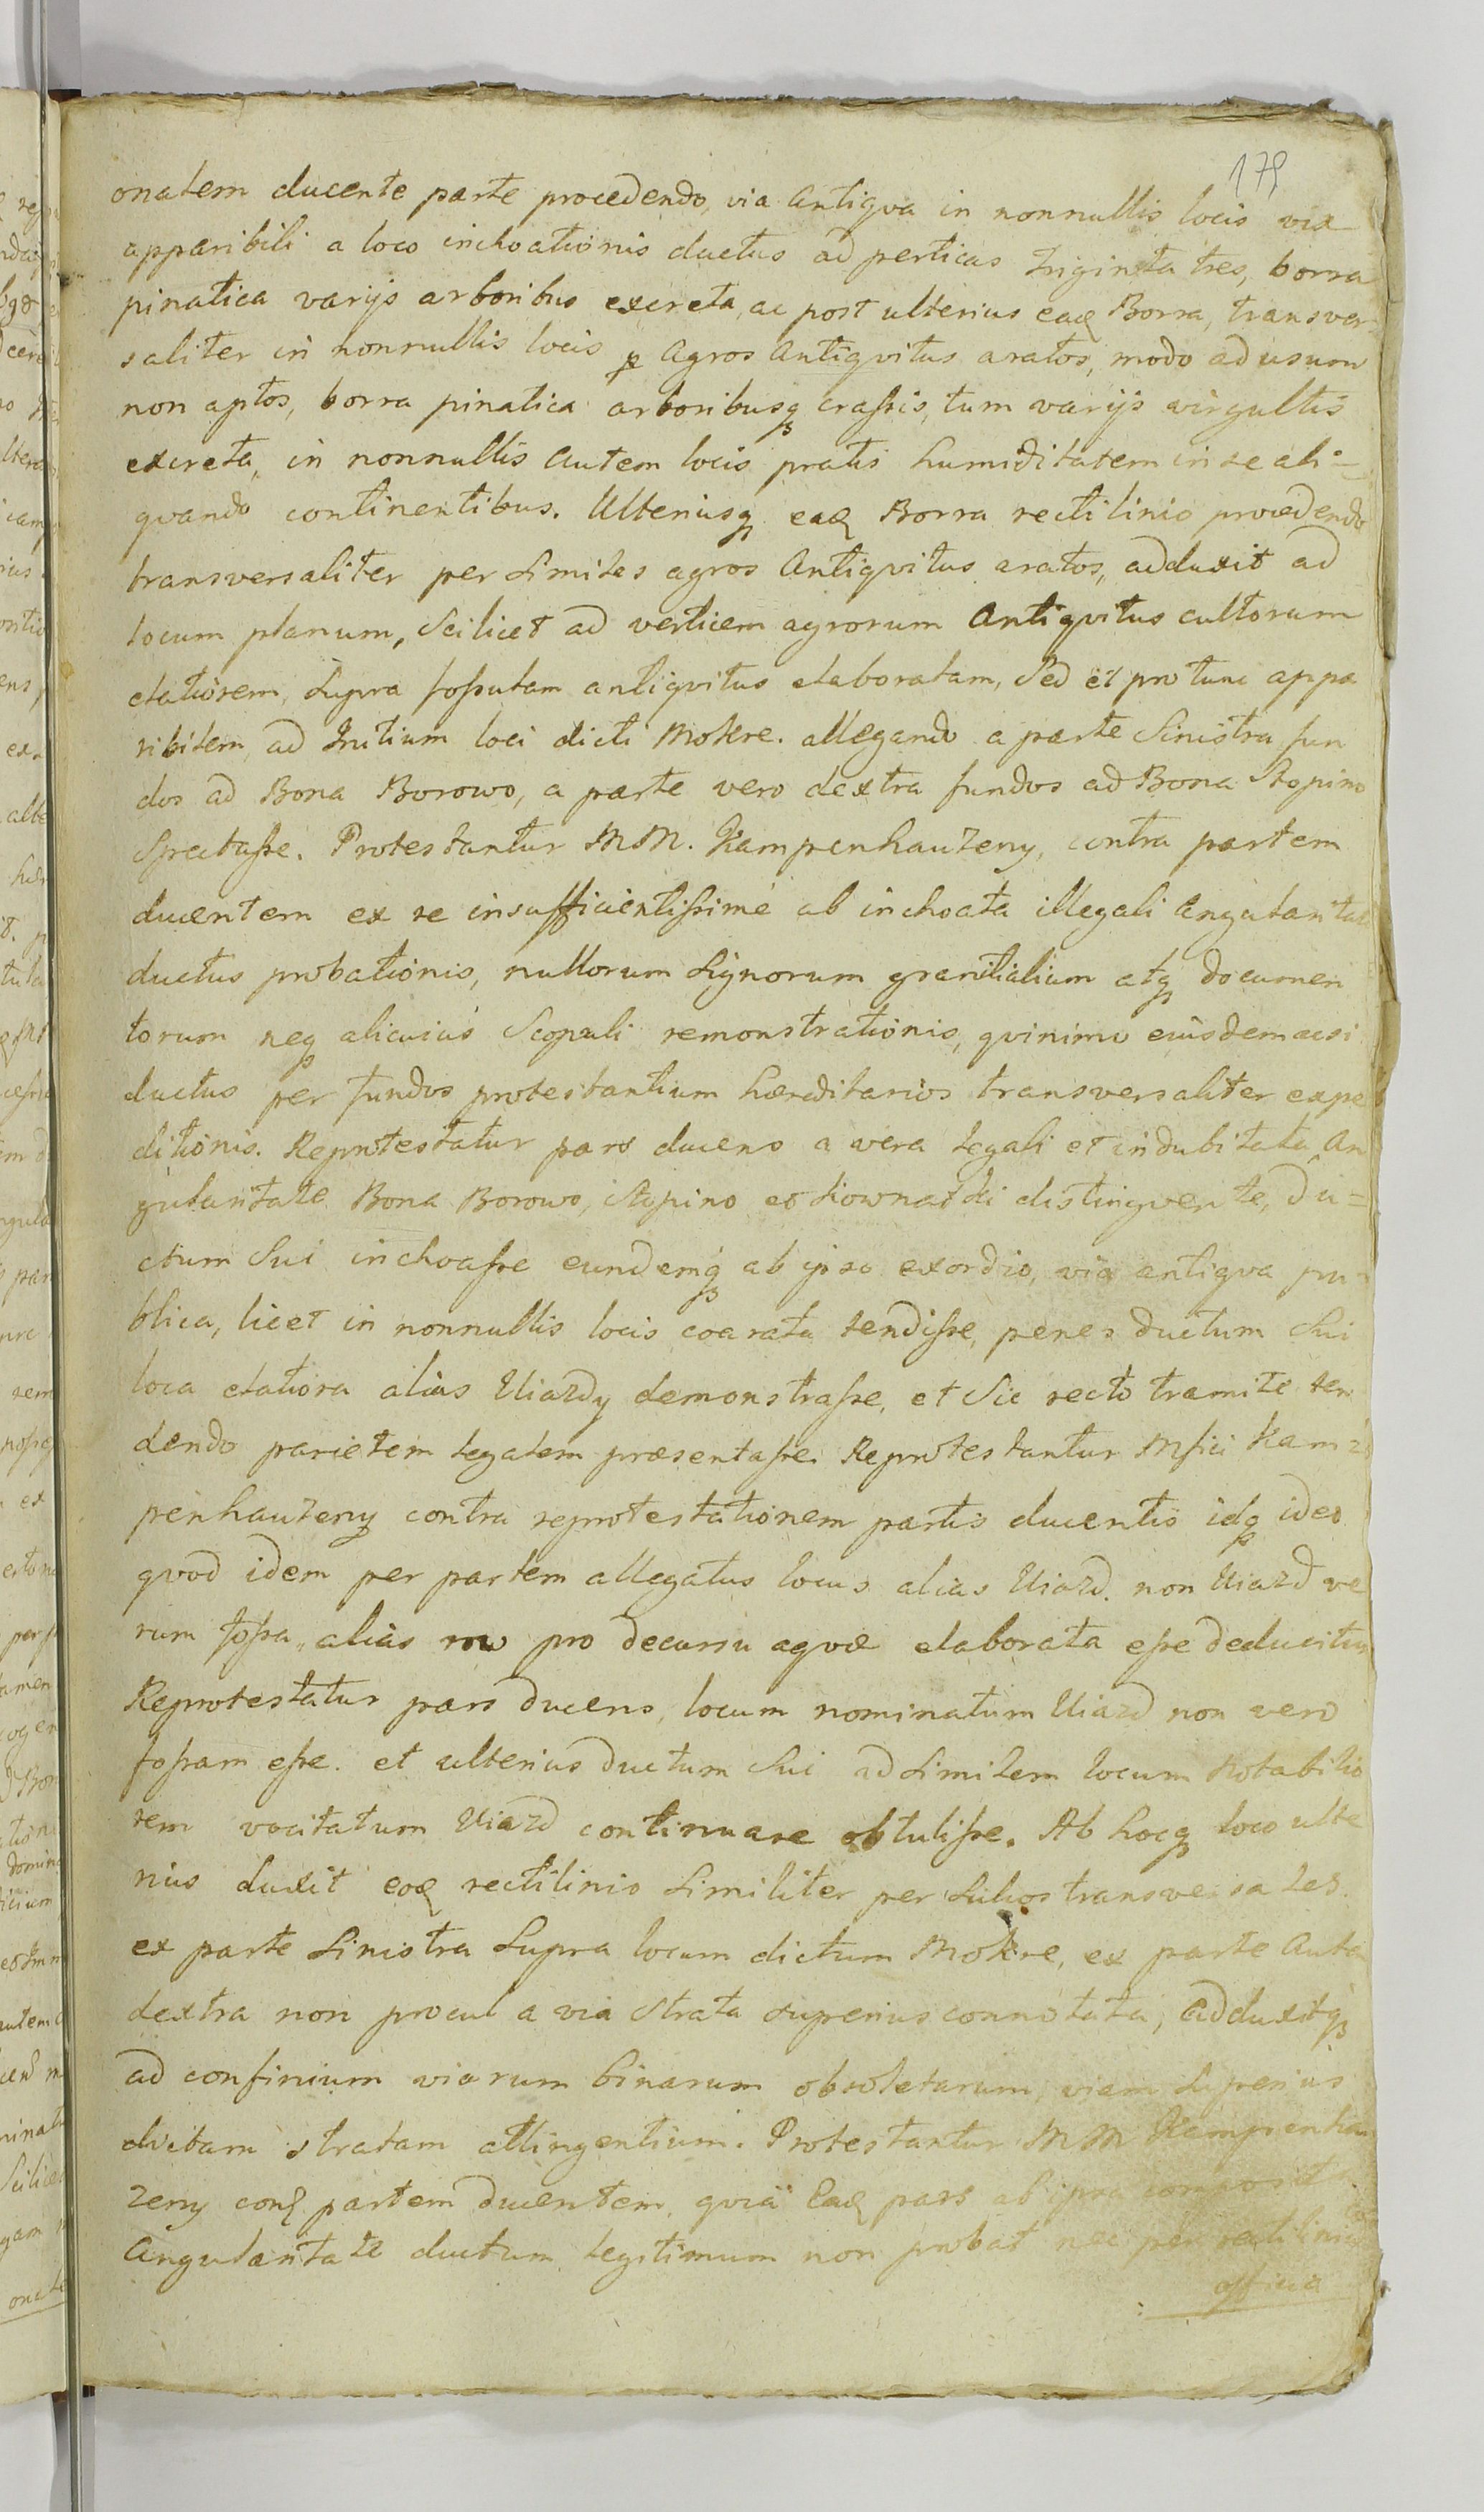 179
onatem ducente parte procedendo, via Antiqva in nonnullis locis vix
apparibili a loco inchoationis ductus ad perticas triginta tres, borra
pinatica varijs arboribus excreta, ac post ulterius eaq Borra, transver=
saliter in nonnullis locis p Agros Antiqvitus aratos, modo ad usum
non aptos, borra pinatica arboribusq crassis, tum varijs virgultis
excreta, in nonnullis autem locis pratis humiditatem in se ali=
qvando continentibus. Ulteriusq eaq Borra rectilinio procedendo
transversaliter per Similes agros Antiqvitus aratos, adduxit ad
locum planum, Scilicet ad verticem agrorum Antiqvitus cultorum
elatiorem, Supra fossulam antiqvitus elaboratam, Sed et pro tunc appa
ribilem, ad Initium loci dicti Mokre. allegando a parte Sinistra fun
dos ad Bona Borowo, a parte vero dextra fundos ad Bona Stopino
Spectasse. Protestantur MM. Kampenhauzeny, contra partem
ducentem ex re insufficientissimé ab inchoata illegali Angularitate
ductus probationis, nullorum Signorum granitialium atq documen
torum neq alicuius Scopuli remonstrationis, qvinimo eiusdem acsi
ductus per fundos protestantium hæreditarios transversaliter expe
ditionis. Reprotestatur pars ducens a vera legali et indubitata An
gularitate Bona Borowo, Stopino et Kownatki distingvente, du=
ctum Sui inchoasse eundemq ab ipso exordio, via antiqva pu=
blica, licet in nonnullis locis coarata tendisse, penes ductum Sui
loca elatiora alias Uiazdy demonstrasse, et Sic recto tramite ten
dendo parietem legalem præsentasse. Reprotestantur Mfici Kam=
penhauzeny contra reprotestationem partis ducentis idq ideo
qvod idem per partem allegatus locus alias Uiazd. non Uiazd ve
rum fossa, alias row pro decursu aqvæ elaborata esse deducitur
Reprotestatur pars ducens, locum nominatum Uiazd non vero
fossam esse. et ulterius ductum Sui ad Similem locum Notabilio
rem vocitatum Uiazd continuare obtulisse. Ab hocq loco ulte
rius duxit eoq rectilinio Similiter per Sulcos transversales
ex parte Sinistra Supra locum dictum Mokre, ex parte Autem
dextra non procul a via Strata superius connotata, adduxitq
ad confinium viarum binarum obsoletarum, viam Superius
dictam stratam attingentium. Protestantur MM Kampenhau
zeny conq partem ducentem, qvia Eaq pars ab ipsa composita
Angularitate ductum legitimum non probat nec per rectilinia
officia